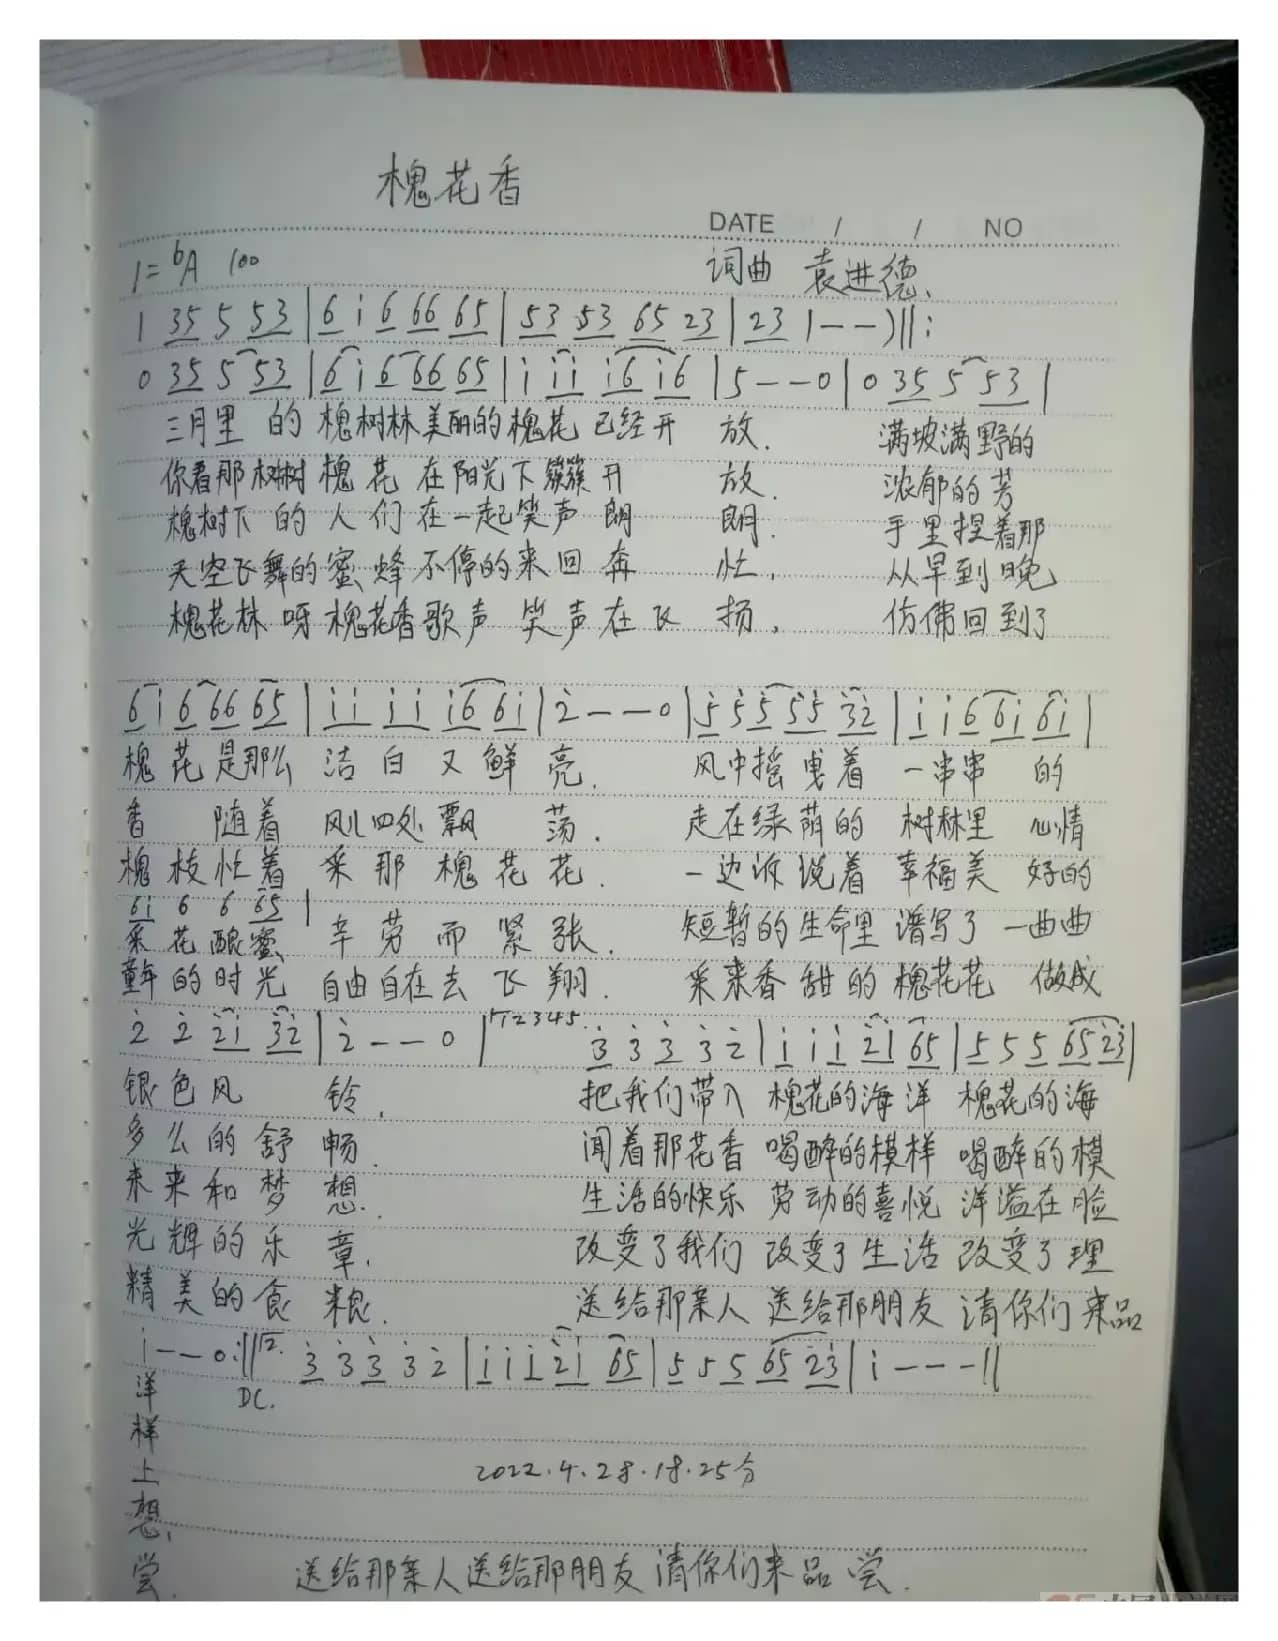 槐花香
DATE / / NO
1=ᵇA 100 词曲 袁进德、
1 35 5 53 | 6 i 6 66 65 | 53 53 65 23 | 23 1 - - ) ‖:
0 35 5 53 | 6 i 6 66 65 | i i i i6 i6 | 5 - - 0 | 0 35 5 53 |
三月里 的 槐树林美丽的槐花 已经开 放. 满坡满野的
你看那树树 槐 花 在阳光下簇簇开 放. 浓郁的芳
槐树下 的 人们 在一起笑声 朗 朗. 手里捏着那
天空飞舞的蜜 蜂 不停的来回 奔 忙. 从早到晚
槐花林 呀 槐花香歌声 笑声 在 飞 扬. 仿佛回到了
6 i 6 66 65 | i i i i i6 6i | 2 - - 0 | 5 5 5 5 5 32 | i i 6 6i 6i |
槐 花 是那么 洁 白 又 鲜 亮. 风中摇曳着 一串串 的
香 随着 风儿四处 飘 荡. 走在绿荫的 树林里 心情
槐 枝 忙着 采 那 槐 花 花. 一边诉说着 幸福美 好的
6i 6 6 65 |
采 花 酿 蜜 辛 劳 而 紧 张. 短暂的生命里 谱写了 一曲曲
童年 的 时光 自由自在去 飞 翔. 采来香 甜 的 槐花花 做成
2 2 2i 32 | 2 - - 0 | 12345. 3 3 3 3 2 | i i i 2i 65 | 5 5 5 65 23 |
银色风 铃. 把我们带入 槐花的海 洋 槐花的海
多么的舒 畅. 闻着那花香 喝醉的模样 喝醉的模
未来和梦 想. 生活的快乐 劳动的喜悦 洋溢在脸
光辉的乐 章. 改变了我们 改变了生活 改变了理
精美的食 粮. 送给那亲人 送给那朋友 请你们来品
i - - 0 :‖ 12. 3 3 3 3 2 | i i i 2i 65 | 5 5 5 65 23 | i - - - ‖
洋 DC.
样
上 2022.4.28.18.25分
想.
尝. 送给那亲人送给那朋友 请你们来品 尝.